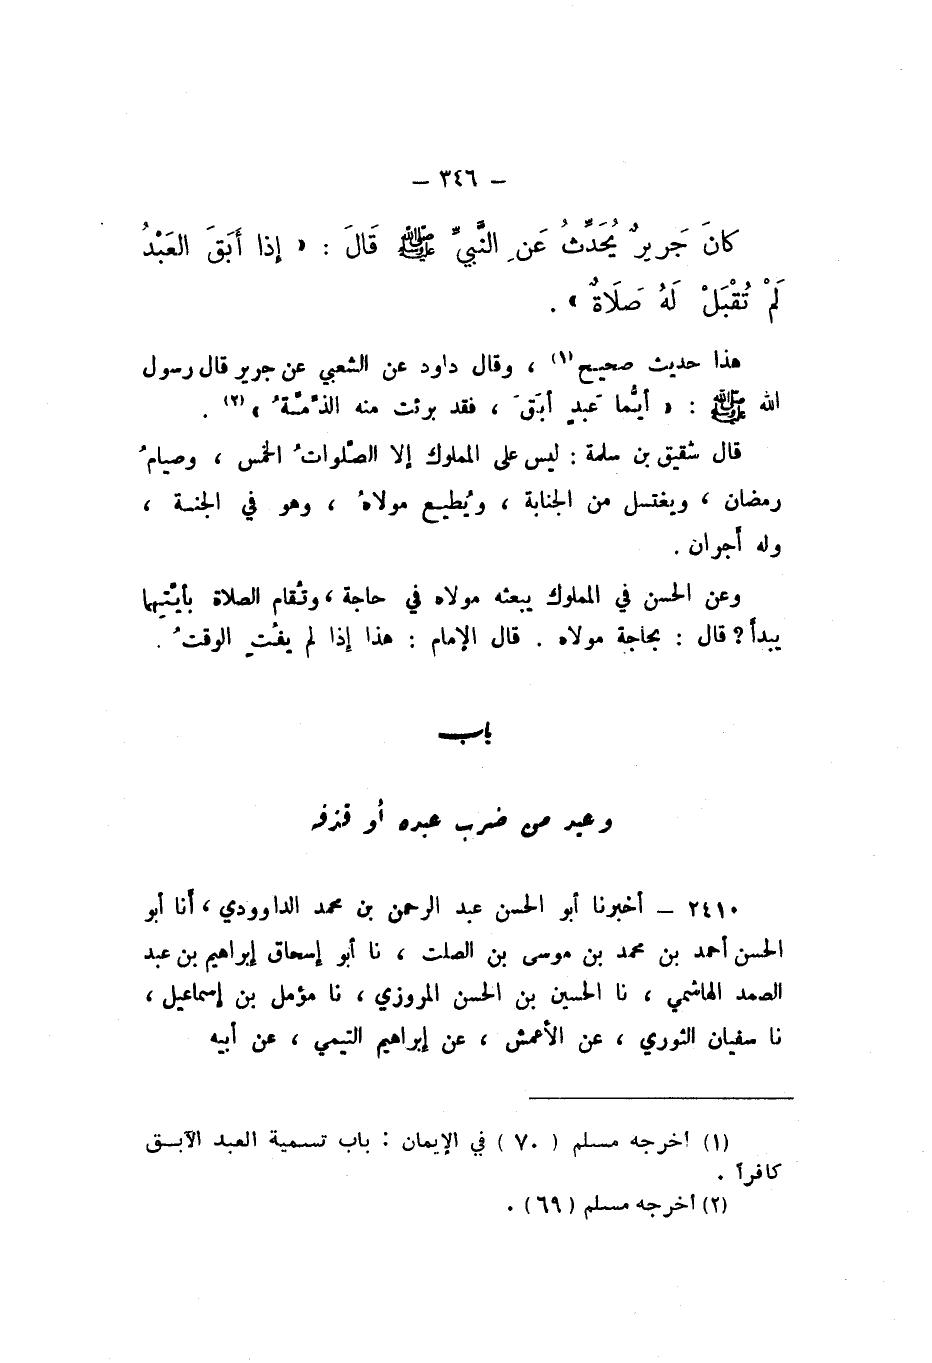 – ٣٤٦ –
كانَ جَريرٌ يُحَدِّثُ عَنِ النَّبيِّ ﷺ قَالَ : « إذا أَبَقَ العَبْدُ
لَمْ تُقْبَلْ لَهُ صَلَاةٌ » .
هذا حديث صحيح(١) ، وقال داود عن الشعبي عن جرير قال رسول
الله ﷺ : « أيُّما عَبدٍ أبَقَ ، فقد برئت منه الذِّمَّةُ » (٢) .
قال شقيق بن سلمة : ليس على المملوك إلا الصَّلواتُ الخمس ، وصيامُ
رمضان ، ويغتسل من الجنابة ، ويُطيع مولاهُ ، وهو في الجنة ،
وله أجران .
وعن الحسن في المملوك يبعثه مولاه في حاجة ، وتُقام الصلاة بأيَّتِهما
يبدأ ؟ قال : بحاجة مولاه . قال الإمام : هذا إذا لم يفُتِ الوقتُ .
باب
وعيد من ضرب عبده أو قذفه
٢٤١٠ – أخبرنا أبو الحسن عبد الرحمن بن محمد الداوودي ، أنا أبو
الحسن أحمد بن محمد بن موسى بن الصلت ، نا أبو إسحاق إبراهيم بن عبد
الصمد الهاشمي ، نا الحسين بن الحسن المروزي ، نا مؤمل بن إسماعيل ،
نا سفيان الثوري ، عن الأعمش ، عن إبراهيم التيمي ، عن أبيه
(١) أخرجه مسلم ( ٧٠ ) في الإيمان : باب تسمية العبد الآبق
كافراً .
(٢) أخرجه مسلم ( ٦٩ ) .